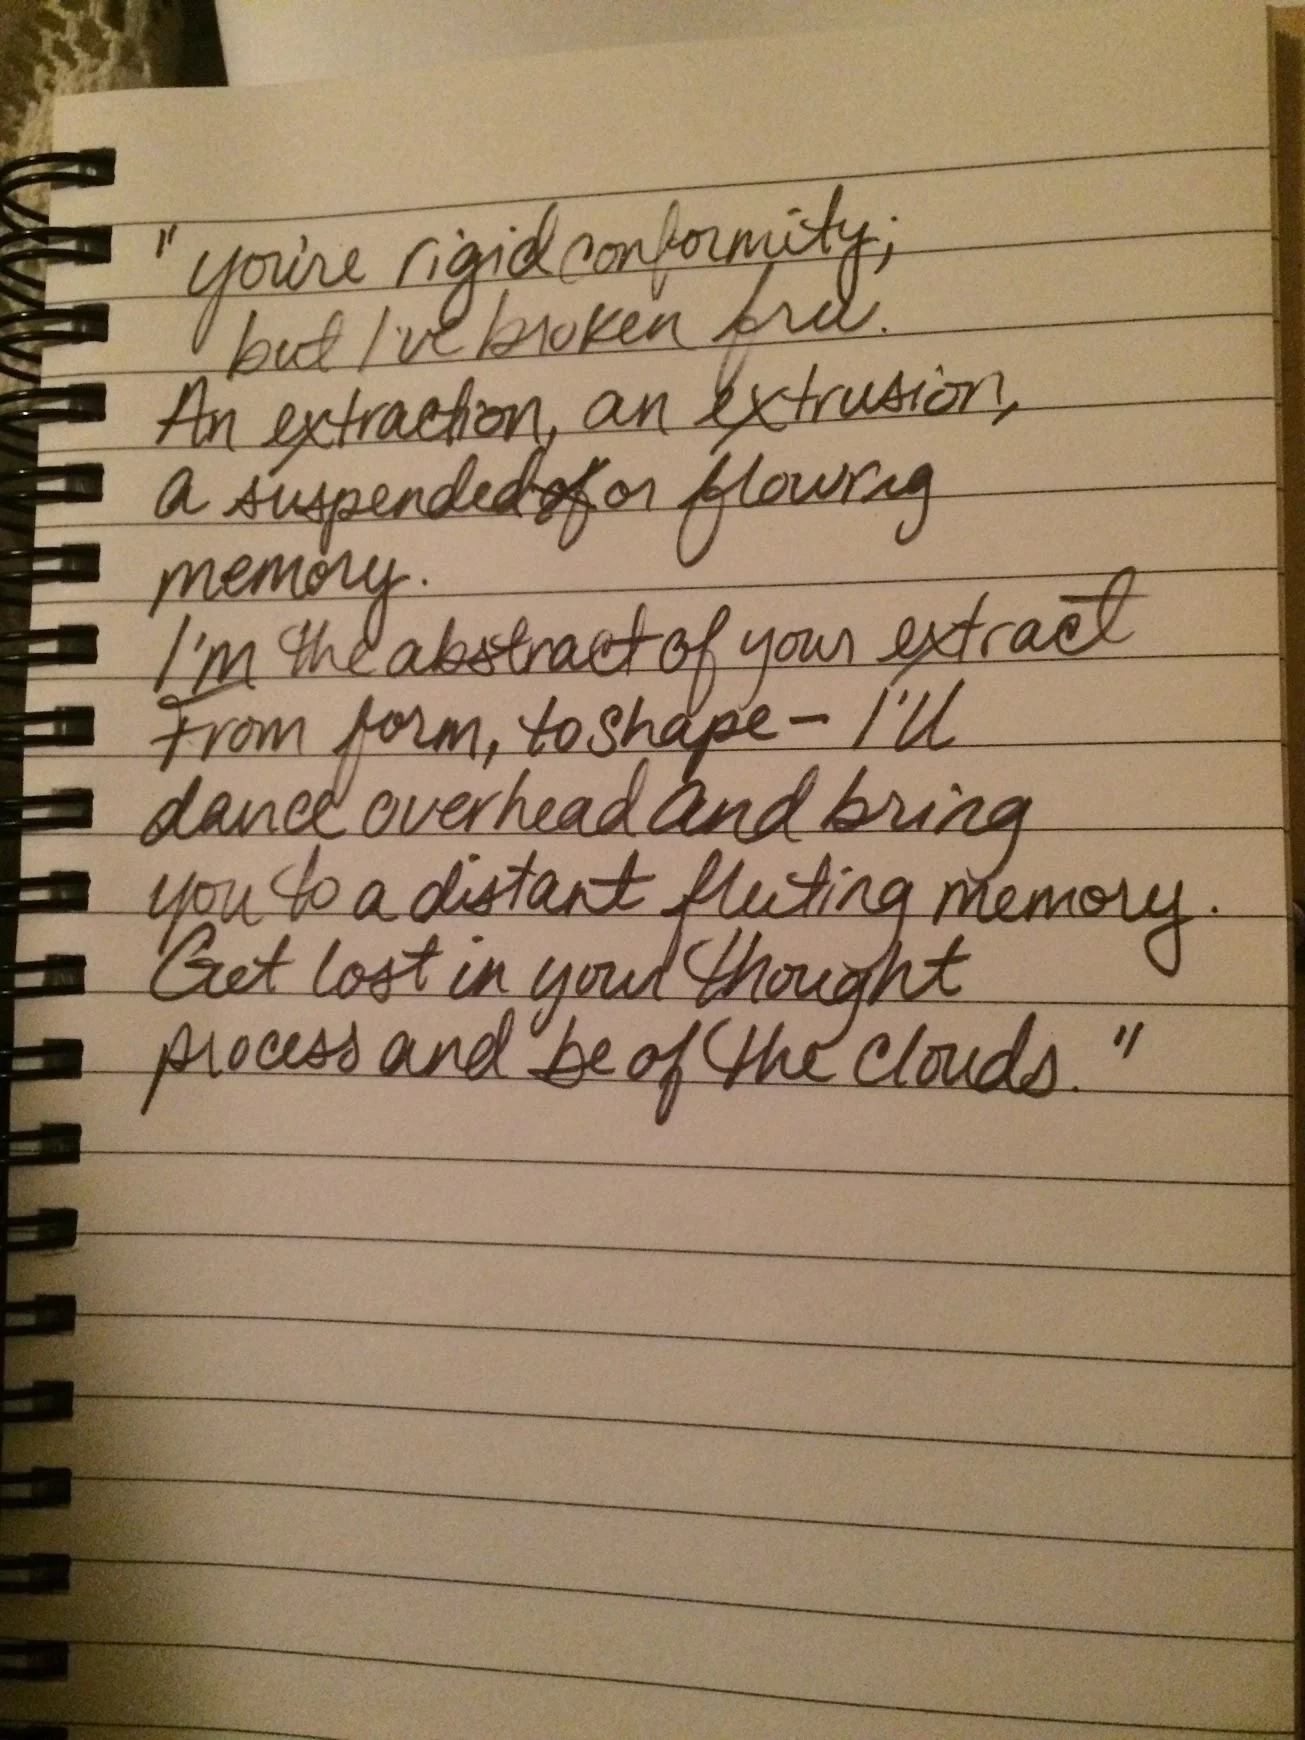 "You're rigid conformity;
but I've broken free.
An extraction, an extrusion,
a suspended or flowing
memory.
I'm the abstract of your extract
From form, to shape – I'll
dance overhead and bring
you to a distant fleeting memory.
Get lost in your thought
process and be of the clouds."